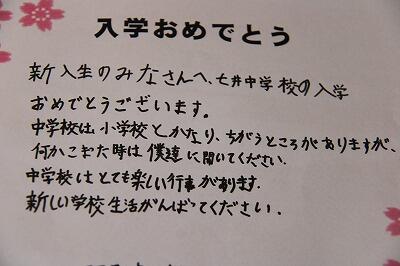 入学おめでとう
新入生のみなさんへ、七井中学校の入学
おめでとうございます。
中学校は小学校とかなり、ちがうところがありますが、
何かこまった時は僕達に聞いてください。
中学校はとても楽しい行事があります。
新しい学校生活がんばってください。